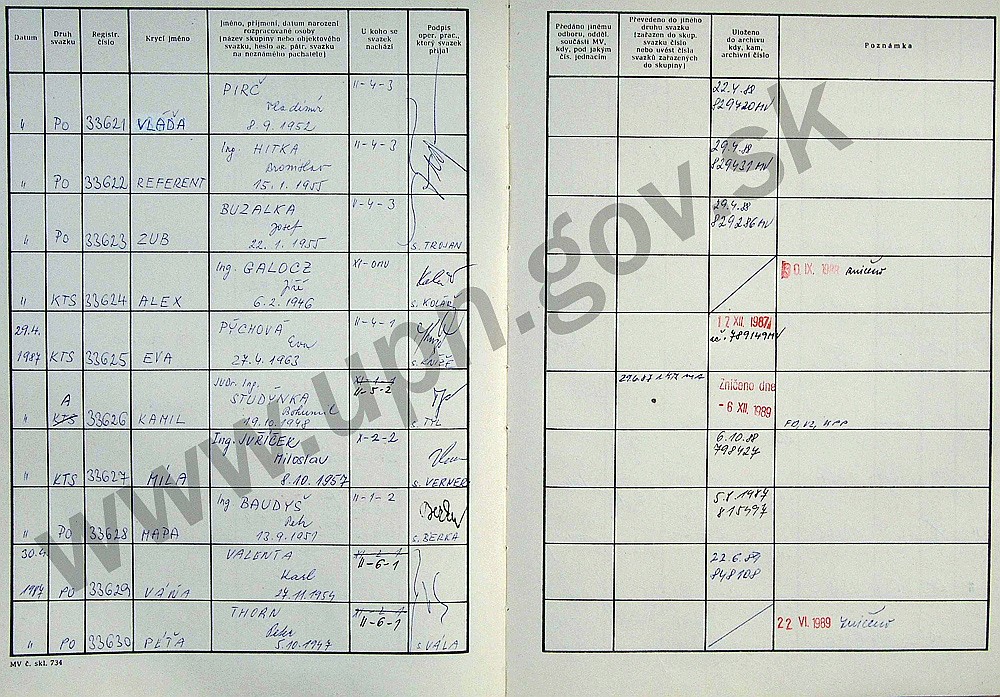 Datum
Druh svazku
Registr. číslo
Krycí jméno
Jméno, příjmení, datum narození rozpracované osoby (název skupiny nebo objektového svazku, heslo ag. pátr. svazku na neznámého pachatele)
U koho se svazek nachází
Podpis oper. prac., který svazek přijal
Předáno jinému odboru, odděl. součásti MV, kdy, pod jakým čís. jednacím
Převedeno do jiného druhu svazku (zařazen do skup. svazku číslo nebo uvést čísla svazků zařazených do skupiny)
Uloženo do archivu kdy, kam, archivní číslo
Poznámka
PIRČ II-4-3 22.4.88
Vladimír 829420 MV
" PO 33621 VLÁĎA 8.9.1952
Ing. HITKA II-4-3 29.4.88
Bromislav 829431 MV
" PO 33622 REFERENT 15.1.1955
BUZALKA II-4-3 29.4.88
Josef 829286 MV
" PO 33623 ZUB 22.1.1955 s. TROJAN
Ing. GALOCZ XI-OMV
Jiří zničeno
" KTS 33624 ALEX 6.2.1946 s. KOLÁŘ
29.4. PÝCHOVÁ II-4-1 17 XII. 1987
Eva 789149 MV
1987 KTS 33625 EVA 27.4.1963 s. KNÍŽE
JUDr. Ing. XI-1-1 Zničeno dne
A STUDÝNKA II-5-2 - 6 XII. 1989
Bohumil
" KTS 33626 KAMIL 19.10.1948 s. TYL
Ing. JUŘÍČEK X-2-2 6.10.88
Miloslav 798427
" KTS 33627 MÍLA 8.10.1957 s. VERNER
Ing BAUDYŠ II-1-2 5.8.1987
Petr 815497
" PO 33628 MAPA 13.9.1951 s. BERKA
30.4. VALENTA II-6-1 22.6.89
Karel 848108
1987 PO 33629 VÁŇA 27.11.1954
THORN II-6-1
Petr 22 VI. 1989 zničeno
" PO 33630 PÉŤA 5.10.1947 s. VÁLA
MV č. skl. 734
www.upn.gov.sk